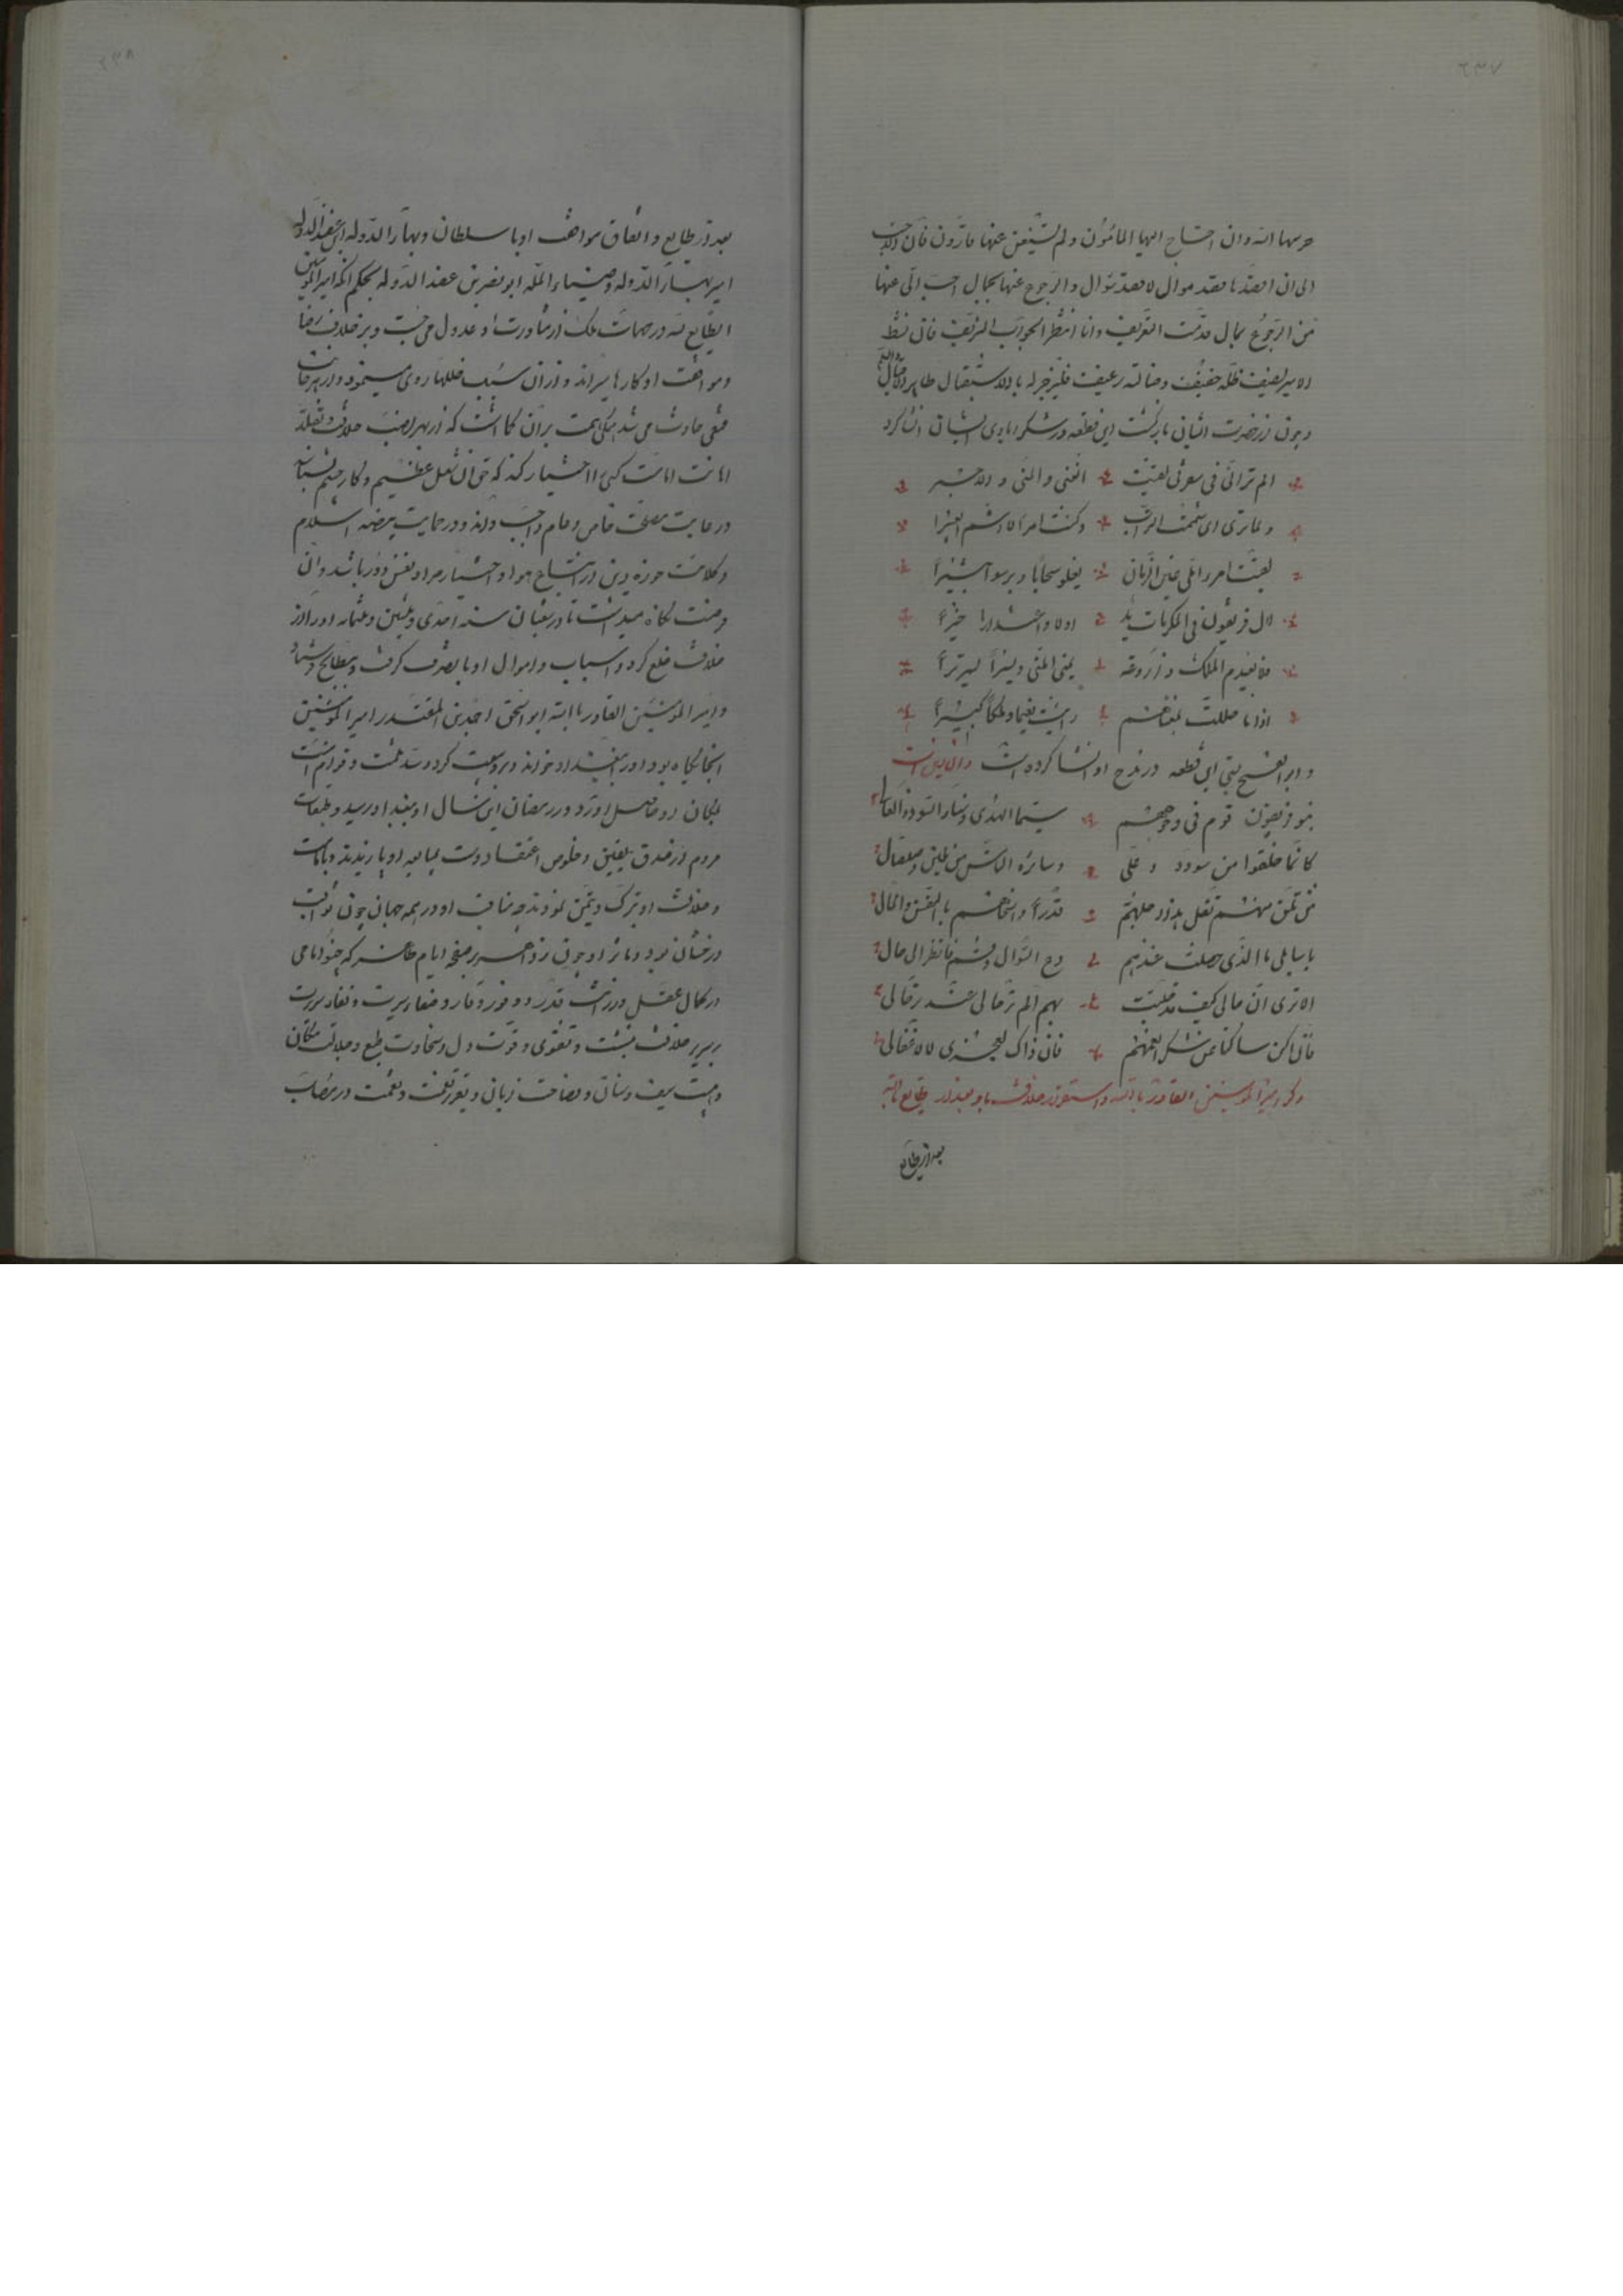 ۲۳۷
حرسها الله وان احتاج الیها المأمون ولم یستغن عنها قارون فان الاحب
الی ان اقصدها قصد موال لا قصد سؤال والرجوع عنها بجمال احب الی عنها
من الرجوع بمال قدمت التعریف وانا انتظر الجواب الشریف فان نشط
الامیر لضیف ظله خفیف وضالته رغیف فلیزجر له بالاستقبال طایر الاقبال والله
و چون از حضرت ایشان بازگشت این قطعه در شکر ایادی ایشان انشا کرد
الم تر انی فی سفرتی لقیت الغنی والمنی والامیر
ولما تری ای شمت التراب وکنت امرأ لا اشم العبیرا
لقیت امرءا ملئ عین الزمان یعلو سحابا ویرسو ثبیرا
لآل فریغون فی المکرمات ید اولا واعتذارا اخیرا
اذا ما حللت بمغناهم رأیت نعیما وملکا کبیرا
و ابو الفتح بستی این قطعه در مدح او انشا کرده است و آن اینست
بنو فریغون قوم فی وجوههم سیما الهدی وسناء السودد العالی
کانما خلقوا من سودد و علی وسائر الناس من طین وصلصال
من تلق منهم تقل هذا اجلهم قدرا واسخاهم بالنفس والمال
یا سایلی ما الذی حصلت عندهم دع السؤال وقم فانظر الی حالی
الا تری ان حالی کیف قد حلیت بهم الم تر حالی عند ترحالی
فان اکن ساکتا عن شکر انعمهم فان ذاک لعجزی لا لاغفالی
ذکر امیر المؤمنین القادر بالله و استقرار خلافت باو بعد از طایع لله
بعد از طایع
۲۳۸
بعد از طایع و اتفاق موافقت او با سلطان و بهاء الدوله ابن عضد الدوله
امیر بهاء الدوله وضیاء المله ابو نصر بن عضد الدوله بحکم آنکه امیر المؤمنین
الطایع لله در مهمات ملک از مشاورت او عدول می جست و بر خلاف رضا
و موافقت او کارها میراند و از آن سبب خللها روی مینمود و از هر جانب
فتقی حادث می شد همگی همت بر آن گماشت که از بهر منصب خلافت و تقلد
امانت امامت کسی را اختیار کند که حق آن شغل عظیم و کار جسیم بشناسد
و رعایت مصلحت خاص و عام واجب داند و در حمایت بیضه اسلام
و کلائت حوزه دین از اتباع هوا و اختیار مراد نفس دور باشد و آن
فرصت نگاه میداشت تا در شعبان سنه احدی و ثمنین و ثلثمائه او را از
خلافت خلع کرد و اسباب و اموال او با تصرف گرفت و
و امیر المؤمنین القادر بالله ابو اسحق احمد بن المقتدر امیر المؤمنین
آنجایگاه بود او را ببغداد خواند و برو بیعت کرد و سده
بمکان او حاصل آورد و در رمضان این سال او ببغداد رسید و طبقات
مردم از صدق یقین و خلوص اعتقاد دست بمبایعه او یازیدند و بامامت
و خلافت او تبرک و تیمن نمودند چه مناقب او در همه جهان چون کواکب
درخشان بود و مآثر او چون زواهر بر صفحه ایام ظاهر که چنو امامی
در کمال عقل و رزانت قدر و وفور وقار و صفاء سیرت و نقاء سریرت
بر سریر خلافت ننشست و تقوی و قوت دل و سخاوت طبع و جلالت مکان
و هیبت سیف و سنان و فصاحت زبان و تعزز نعمت در نصاب